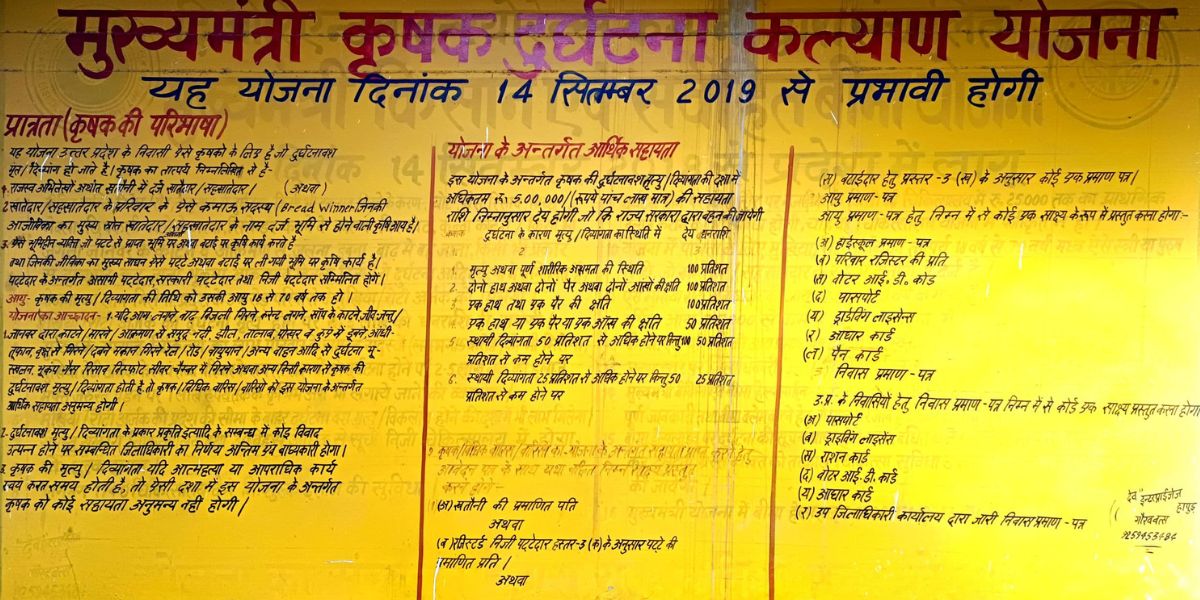 मुख्यमंत्री कृषक दुर्घटना कल्याण योजना
यह योजना दिनांक 14 सितम्बर 2019 से प्रभावी होगी
प्रात्रता (कृषक की परिभाषा)
यह योजना उत्तर प्रदेश के निवासी ऐसे कृषको के लिए है जो दुर्घटनावश
मृत/दिव्यांग हो जाते है। कृषक का तात्पर्य निम्नलिखित से है-
1. राजस्व अभिलेखो अर्थात खतौनी में दर्ज खातेदार/सहखातेदार। (अथवा)
2. खातेदार/सहखातेदार के परिवार के ऐसे कमाऊ सदस्य (Bread Winner जिनकी
आजीविका का मुख्य स्रोत खातेदार/सहखातेदार के नाम दर्ज भूमि से होने वाली कृषि आय है।
3. ऐसे भूमिहीन व्यक्ति जो पट्टे से प्राप्त भूमि पर अथवा बटाई पर कृषि कार्य करते है
तथा जिनकी जीविका का मुख्य साधन ऐसे पट्टे अथवा बटाई पर ली गयी भूमि पर कृषि कार्य है।
पट्टेदार के अन्तर्गत असामी पट्टेदार, सरकारी पट्टेदार तथा निजी पट्टेदार सम्मिलित होगें।
आयु- कृषक की मृत्यु/दिव्यागता की तिथि को उसकी आयु 18 से 70 वर्ष तक हो।
योजना का आच्छादन- 1. यदि आग लगने, बाढ़, बिजली गिरने, करेन्ट लगने, साँप के काटने, जीव-जन्तु/
जानवर द्वारा काटने/मारने/आक्रमण से समुद्र, नदी, झील, तालाब, पोखर व कुऐ में डूबने आंधी-
तूफान, वृक्ष से गिरने/दबने मकान गिरने रेल/रोड/वायुयान/अन्य वाहन आदि से दुर्घटना भू-
स्खलन भूकम्प गैस रिसाव विस्फोट सीवर चैम्बर में गिरने अथवा अन्य किसी कारण से कृषक की
दुर्घटनावश मृत्यु/दिव्यांगता होती है, तो कृषक/विधिक वारिस/वारिसो को इस योजना के अन्तर्गत
आर्थिक सहायता अनुमन्य होगी।
2. दुर्घटनावश मृत्यु/दिव्यांगता के प्रकार प्रकृति इत्यादि के सम्बन्ध में कोई विवाद
उत्पन्न होने पर सम्बन्धित जिलाधिकारी का निर्णय अन्तिम एवं बाध्यकारी होगा।
3. कृषक की मृत्यु/दिव्यांगता यदि आत्महत्या या आपराधिक कार्य
स्वय करते समय होती है, तो ऐसी दशा में इस योजना के अन्तर्गत
कृषक को कोई सहायता अनुमन्य नही होगी।
योजना के अन्तर्गत आर्थिक सहायता
इस योजना के अन्तर्गत कृषक की दुर्घटनावश मृत्यु/दिव्यागता की दशा में
अधिकतम रू० 5,00,000/(रूपये पाच लाख मात्र) की सहायता
राशि निम्नानुसार देय होगी जो कि राज्य सरकार द्वारा वहन की जायेगी
दुर्घटना के कारण मृत्यु/दिव्यागता का स्थिति में देय धनराशि
2 3
1. मृत्यु अथवा पूर्ण शारीरिक अक्षमता की स्थिति 100 प्रतिशत
2. दोनो हाथ अथवा दोनो पैर अथवा दोनो आखों की क्षति 100 प्रतिशत
3. एक हाथ तथा एक पैर की क्षति 100 प्रतिशत
4. एक हाथ या एक पैर या एक आँख की क्षति 50 प्रतिशत
5. स्थायी दिव्यागता 50 प्रतिशत से अधिक होने पर किन्तु 100 50 प्रतिशत
प्रतिशत से कम होने पर
6. स्थायी दिव्यागता 25 प्रतिशत से अधिक होने पर किन्तु 50 25 प्रतिशत
प्रतिशत से कम होने पर
कृषक/विधिक वारिस/वारिसो को योजना के अन्तर्गत सहायता प्राप्त करने हेतु
आवेदन पत्र के साथ यथा निम्न साक्ष्य प्रस्तुत
करने होगे-
(अ) खतौनी की प्रमाणित प्रति
अथवा
(ब) रजिस्टर्ड निजी पट्टेदार हस्तर-3 (क) के अनुसार पट्टे की
प्रमाणित प्रति।
अथवा
(स) बटाईदार हेतु प्रस्तर-3 (ख) के अनुसार कोई एक प्रमाण पत्र।
आयु प्रमाण-पत्र
आयु प्रमाण-पत्र हेतु निम्न में से कोई एक साक्ष्य के रूप में प्रस्तुत करना होगा:-
(अ) हाईस्कूल प्रमाण-पत्र
(ब) परिवार रजिस्टर की प्रति
(स) वोटर आई.डी. कोड
(द) पासपोर्ट
(य) ड्राईविंग लाइसेन्स
(र) आधार कार्ड
(ल) पैन कार्ड
3 निवास प्रमाण-पत्र
उ.प्र. के निवासियों हेतु निवास प्रमाण-पत्र निम्न में से कोई एक साक्ष्य प्रस्तुत करना होगा
(अ) पासपोर्ट
(ब) ड्राईविंग लाइसेंस
(स) राशन कार्ड
(द) वोटर आई.डी. कार्ड
(य) आधार कार्ड
(र) उप जिलाधिकारी कार्यालय द्वारा जारी निवास प्रमाण-पत्र
देव इन्टरप्राईजेज
हापुड़
गौरव वत्स